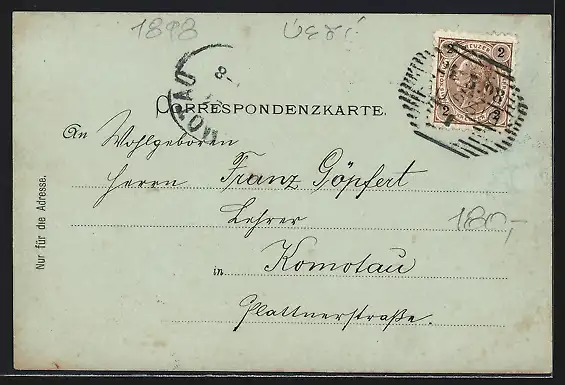 1898
2 KREUZER 2
CORRESPONDENZKARTE.
An Wohlgeboren
Herrn Franz Göpfert
Lehrer
180,-
in Komotau
Plattnerstraße.
Nur für die Adresse.